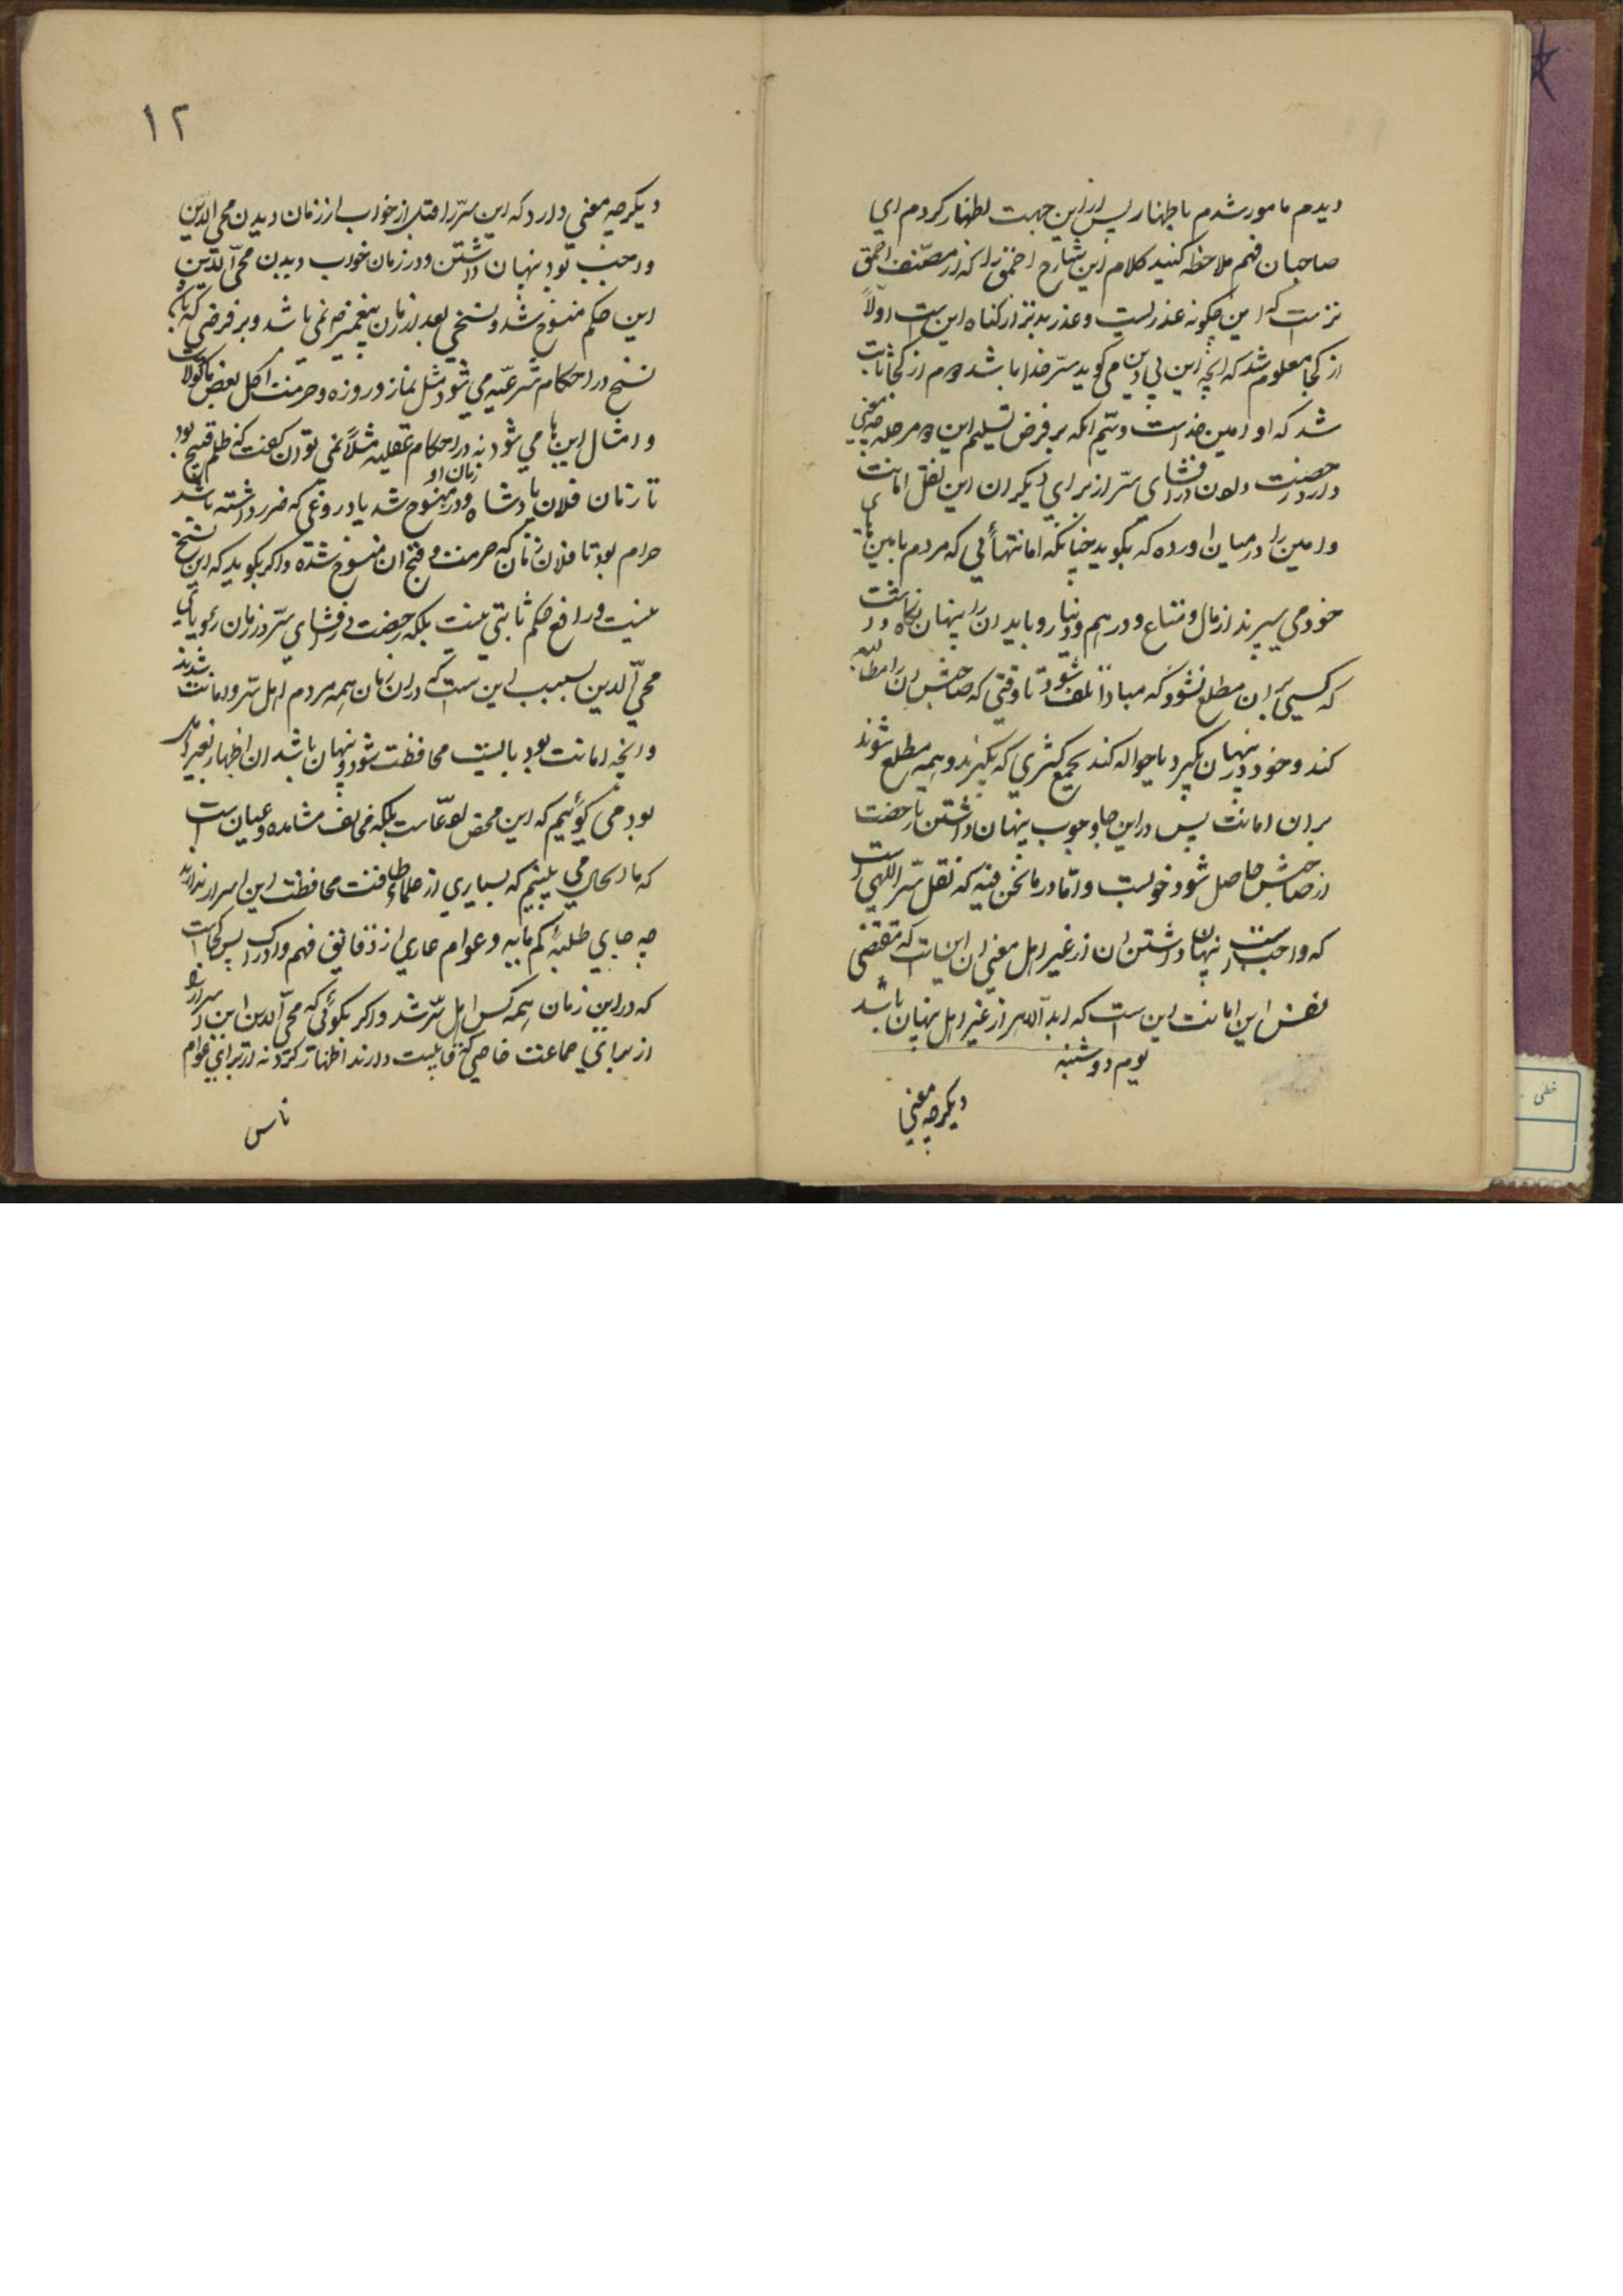 دیدم مامور شدم باظهار پس از این جهت اظهار کردم ای
صاحبان فهم ملاحظه کنید کلام این شارح احمق را که از مصنف احمق
تر است که این چگونه عذریست و عذر بدتر از گناه این است اولاً
از کجا معلوم شد که آنچه این بی دین می گوید سرّ خدا باشد دوم از کجا ثابت
شد که او امین خداست و سیّم آنکه بر فرض تسلیم این دو مرحله چه معنی
دارد رخصت دادن در افشای سرّ از برای دیگران این نقل امانت
و امین را در میان آورده که بگوید چنانکه امانتهائی که مردم بامین های
خود می سپرند از مال و متاع و درهم و دینار و باید آن را پنهان نگاه داشت
که کسی بر آن مطلع نشود که مبادا تلف شود تا وقتی که صاحبش آن را مطالبه
کند و خود در پنهان بگیرد یا حواله کند بجمع کثیری که بگیرند و همه مطلع شوند
بر آن امانت پس در این جا وجوب پنهان داشتن تا رخصت
از صاحبش حاصل شود خوبست و امّا در ما نحن فیه که نقل سرّ اللهی است
که واجب است پنهان داشتن آن از غیر اهل معنی آن این است که مقتضی
نفس این امانت این است که ابد الدهر از غیر اهل پنهان باشد
یوم دوشنبه
دیگر چه معنی
۱۲
دیگر چه معنی دارد که این سرّ را قبل از خواب از زمان دیدن محی الدّین
واجب بود پنهان داشتن و در زمان خواب دیدن محی الدّین
این حکم منسوخ شد و نسخی بعد از زمان پیغمبر ص نمی باشد و بر فرضی که باشد
نسخ در احکام شرعیّه می شود مثل نماز و روزه و حرمت اکل بعض ماکولات
و امثال این ها می شود نه در احکام عقلیه مثلاً نمی توان گفت که ظلم قبیح بود
تا زمان فلان پادشاه و در زمان او منسوخ شد یا دروغی که ضرر داشته باشد
حرام بود تا فلان زمان که حرمت و قبح آن منسوخ شده و اگر بگوید که این نسخ
نیست و رافع حکم ثابتی نیست بلکه رخصت در افشای سرّ در زمان رؤیای
محی الدین بسبب این ست که در آن زمان همه مردم اهل سرّ و امانت شدند
و آنچه امانت بود بایست محافظت شود و پنهان باشد آن اظهار بغیر اهل
بود می گوئیم که این محض ادّعاست بلکه مخالف مشاهده و عیان است
که ما الحال می بینیم که بسیاری از علما طاقت محافظت این اسرار ندارند
چه جای طلبهٔ کم مایه و عوام عاری از دقایق فهم و ادراک پس کجاست
که در این زمان همه کس اهل سرّ شد و اگر بگوئی که محی الدین این اسرار را
از برای جماعت خاصی که قابلیت دارند اظهار کرد نه از برای عوام
ناس
خطی